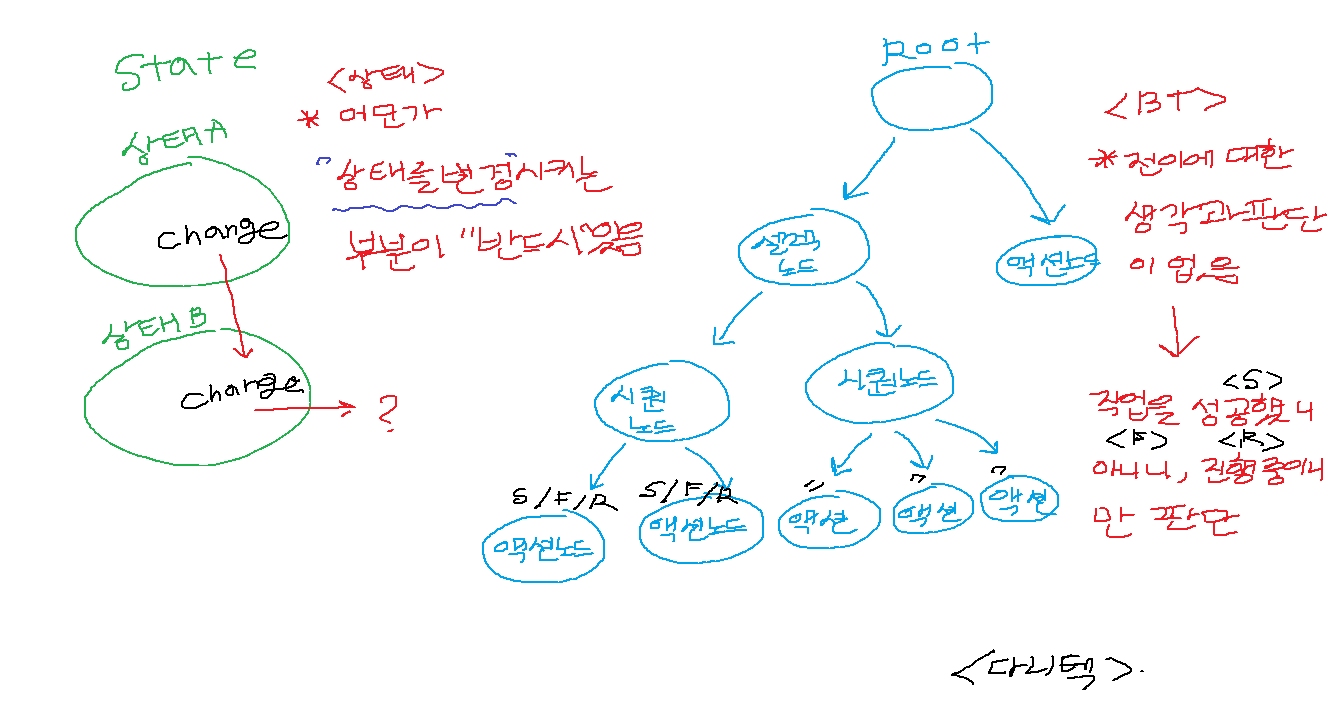 State
상태A
change
상태B
change
?
<상태>
* 어딘가
"상태를변경"시키는
부분이 "반드시"있음
Root
선택
노드
액션노드
시퀀
노드
시퀀노드
S/F/R
액션노드
S/F/R
액션노드
〃
액션
〃
액션
〃
액션
<BT>
*전이에 대한
생각과판단
이 없음
<S>
작업을 성공했니
<F> <R>
아니니, 진행중이니
만 판단
<다니텍>.